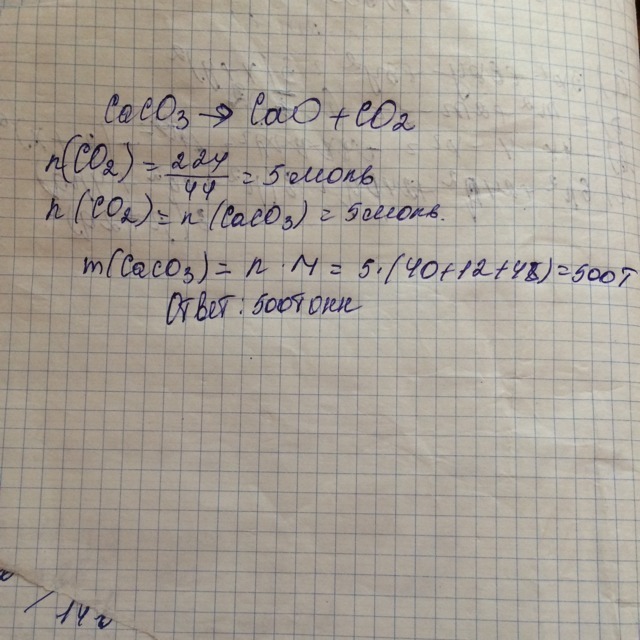 CaCO3 → CaO + CO2
n(CO2) = 224/44 = 5 моль
n(CO2) = n(CaCO3) = 5 моль.
m(CaCO3) = n · M = 5·(40+12+48) = 500т
Ответ: 500тонн
14